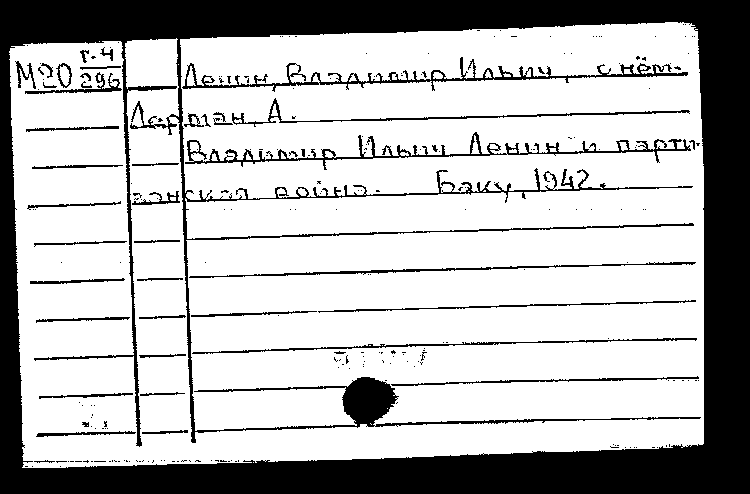 М20 г.ч 296 Ленин, Владимир Ильич, о нём.
Ларман, А.
Владимир Ильич Ленин и парти-
занская война. Баку, 1942.